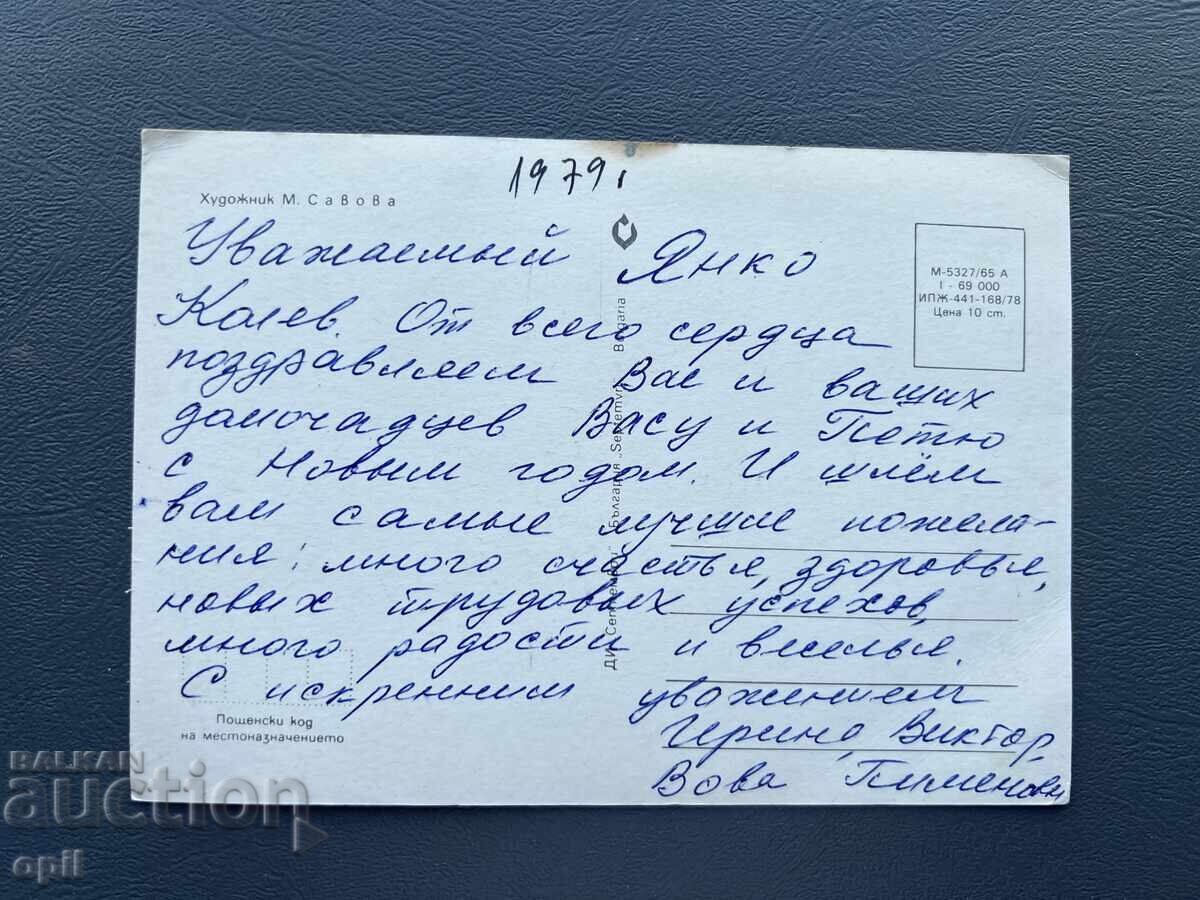 1979г.
Художник М. Савова
Уважаемый Янко
Колев. От всего сердца
поздравляем Вас и ваших
домочадцев Васу и Петю
с Новым годом. И шлём
вам самые лучшие пожела-
ния: много счастья, здоровья,
новых трудовых успехов,
много радости и веселья.
С искренним уважением
Ирина, Виктор,
Вова Пименовы
М-5327/65 А
I - 69 000
ИПЖ-441-168/78
Цена 10 ст.
ДИ „Септември“ България „Septemvri“ Bulgaria
Пощенски код
на местоназначението
BALKAN
auction
opil